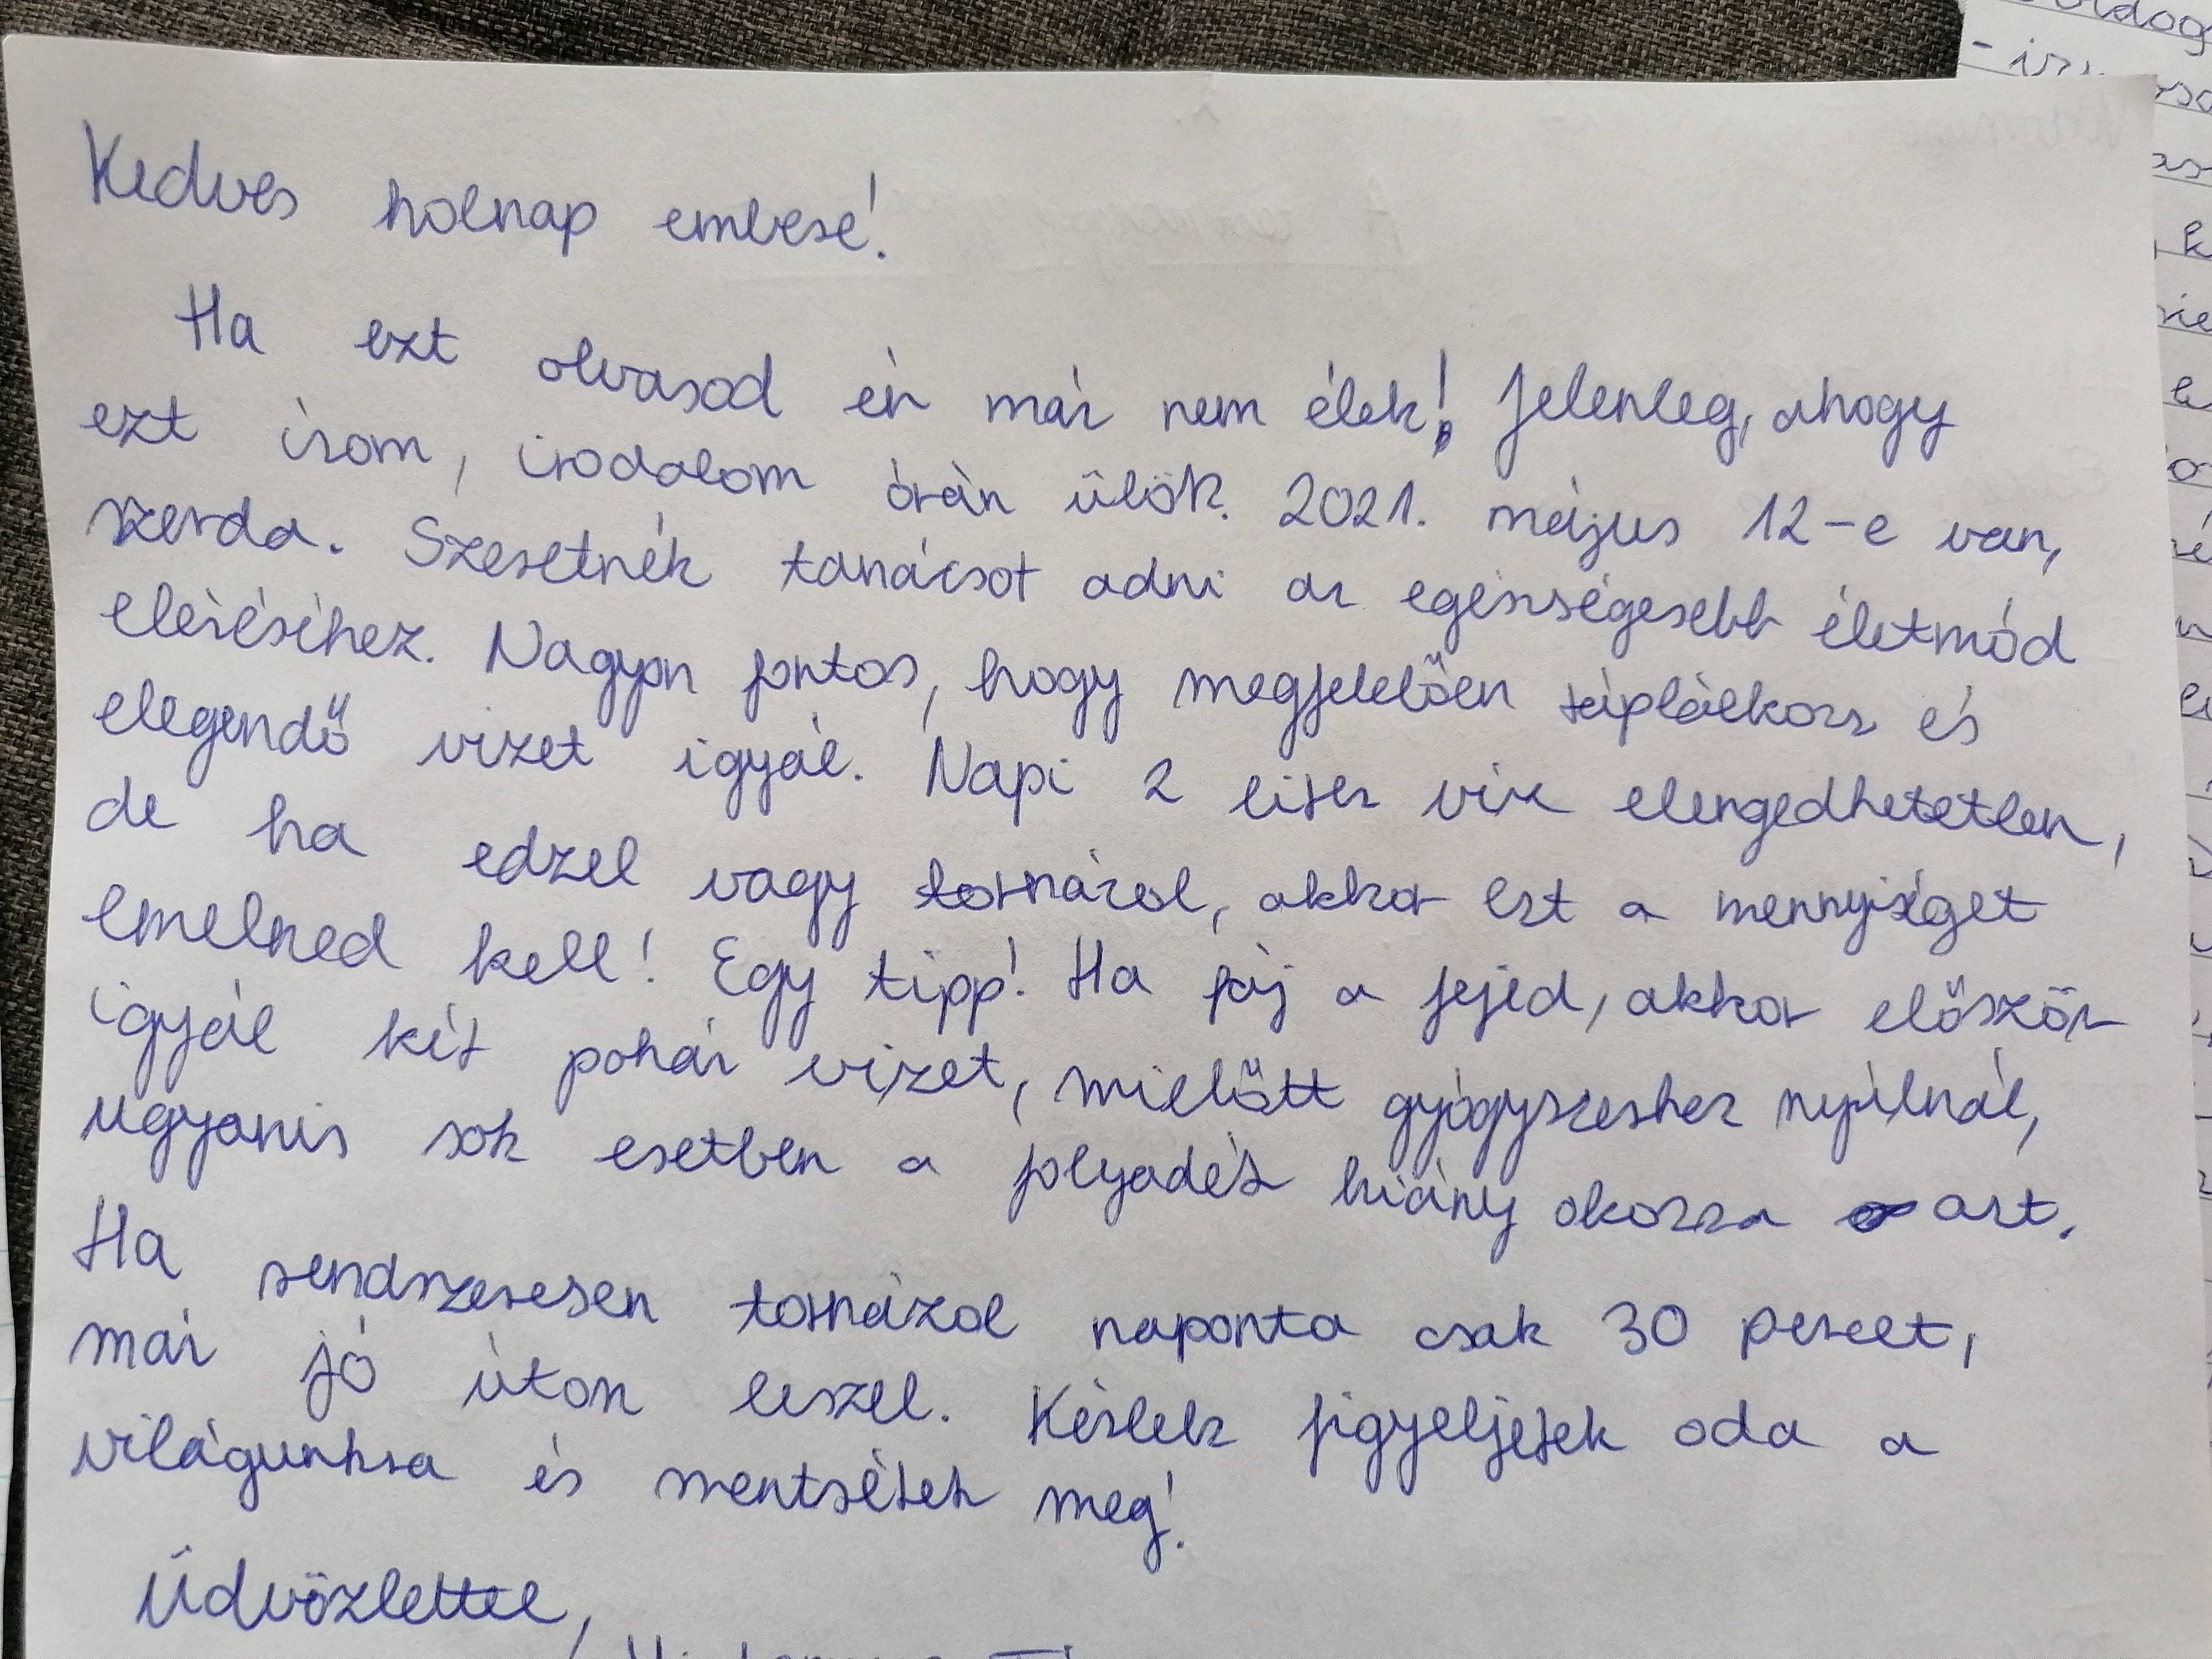 Kedves holnap embere!
Ha ezt olvasod én már nem élek! Jelenleg, ahogy
ezt írom, irodalom órán ülök. 2021. május 12-e van,
szerda. Szeretnék tanácsot adni az egészségesebb életmód
eléréséhez. Nagyon fontos, hogy megfelelően táplálkozz és
elegendő vizet igyál. Napi 2 liter víz elengedhetetlen,
de ha edzel vagy tornázol, akkor ezt a mennyiséget
emelned kell! Egy tipp! Ha fáj a fejed, akkor először
igyál két pohár vizet, mielőtt gyógyszerhez nyúlnál,
ugyanis sok esetben a folyadék hiány okozza azt.
Ha rendszeresen tornázol naponta csak 30 percet,
már jó úton leszel. Kérlek figyeljetek oda a
világunkra és mentsétek meg!
Üdvözlettel,